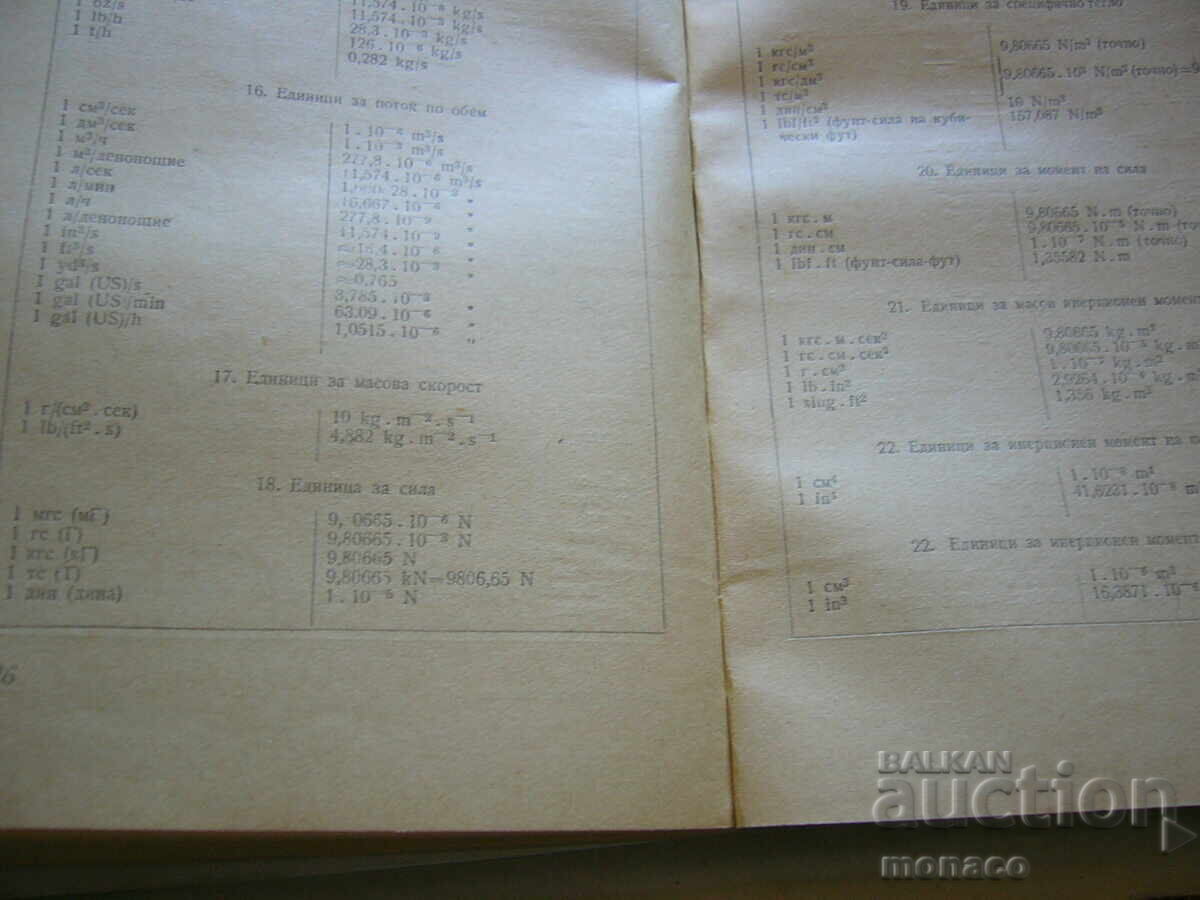 1 oz/s 11,574.10⁻³ kg/s
1 lb/h 28,3.10⁻³ kg/s
1 t/h 126.10⁻⁶ kg/s
0,282 kg/s
16. Единици за поток по обем
1 см³/сек 1.10⁻⁶ m³/s
1 дм³/сек 1.10⁻³ m³/s
1 м³/ч 277,8.10⁻⁶ m³/s
1 м³/денонощие 11,574.10⁻⁶ m³/s
1 л/сек
1 л/мин 16,667.10⁻⁶ "
1 л/ч 277,8.10⁻⁹ "
1 л/денонощие 11,574.10⁻⁹ "
1 in³/s ≈16,4.10⁻⁶ "
1 ft³/s ≈28,3.10⁻³ "
1 yd³/s ≈0,765
1 gal (US)/s 3,785.10⁻³ "
1 gal (US)/min 63.09.10⁻⁶ "
1 gal (US)/h 1,0515.10⁻⁶ "
17. Единици за масова скорост
1 г/(см².сек) 10 kg.m⁻².s⁻¹
1 lb/(ft².s) 4,882 kg.m⁻².s⁻¹
18. Единица за сила
1 мгс (мГ) 9, 0665.10⁻⁶ N
1 гс (Г) 9,80665.10⁻³ N
1 кгс (кГ) 9,80665 N
1 тс (Т) 9,80665 kN=9806,65 N
1 дин (дина) 1.10⁻⁵ N
26
19. Единици за специфично тегло
1 кгс/м³ 9,80665 N/m³ (точно)
1 гс/см³
1 кгс/дм³ 9,80665.10³ N/m³ (точно)=9
1 тс/м³
1 дин/см³ 10 N/m³
1 lbf/ft³ (фунт-сила на куби- 157,087 N/m³
чески фут)
20. Единици за момент на сила
1 кгс.м 9,80665 N.m (точно)
1 гс.см 9,80665.10⁻⁵ N.m (то
1 дин.см 1.10⁻⁷ N.m (точно)
1 lbf.ft (фунт-сила-фут) 1,35582 N.m
21. Единици за масов инерционен момент
1 кгс.м.сек² 9,80665 kg.m²
1 гс.см.сек² 9,80665.10⁻⁵ kg.m²
1 г.см² 1.10⁻⁷ kg.m²
1 lb.in² 2,9264.10⁻⁴ kg.m
1 slug.ft² 1,356 kg.m²
22. Единици за инерционен момент на
1 см⁴ 1.10⁻⁸ m⁴
1 in⁴ 41,6231.10⁻⁸ m
22. Единици за инерционен момент
1 см³ 1.10⁻⁶ m³
1 in³ 16,3871.10⁻
BALKAN
auction
monaco